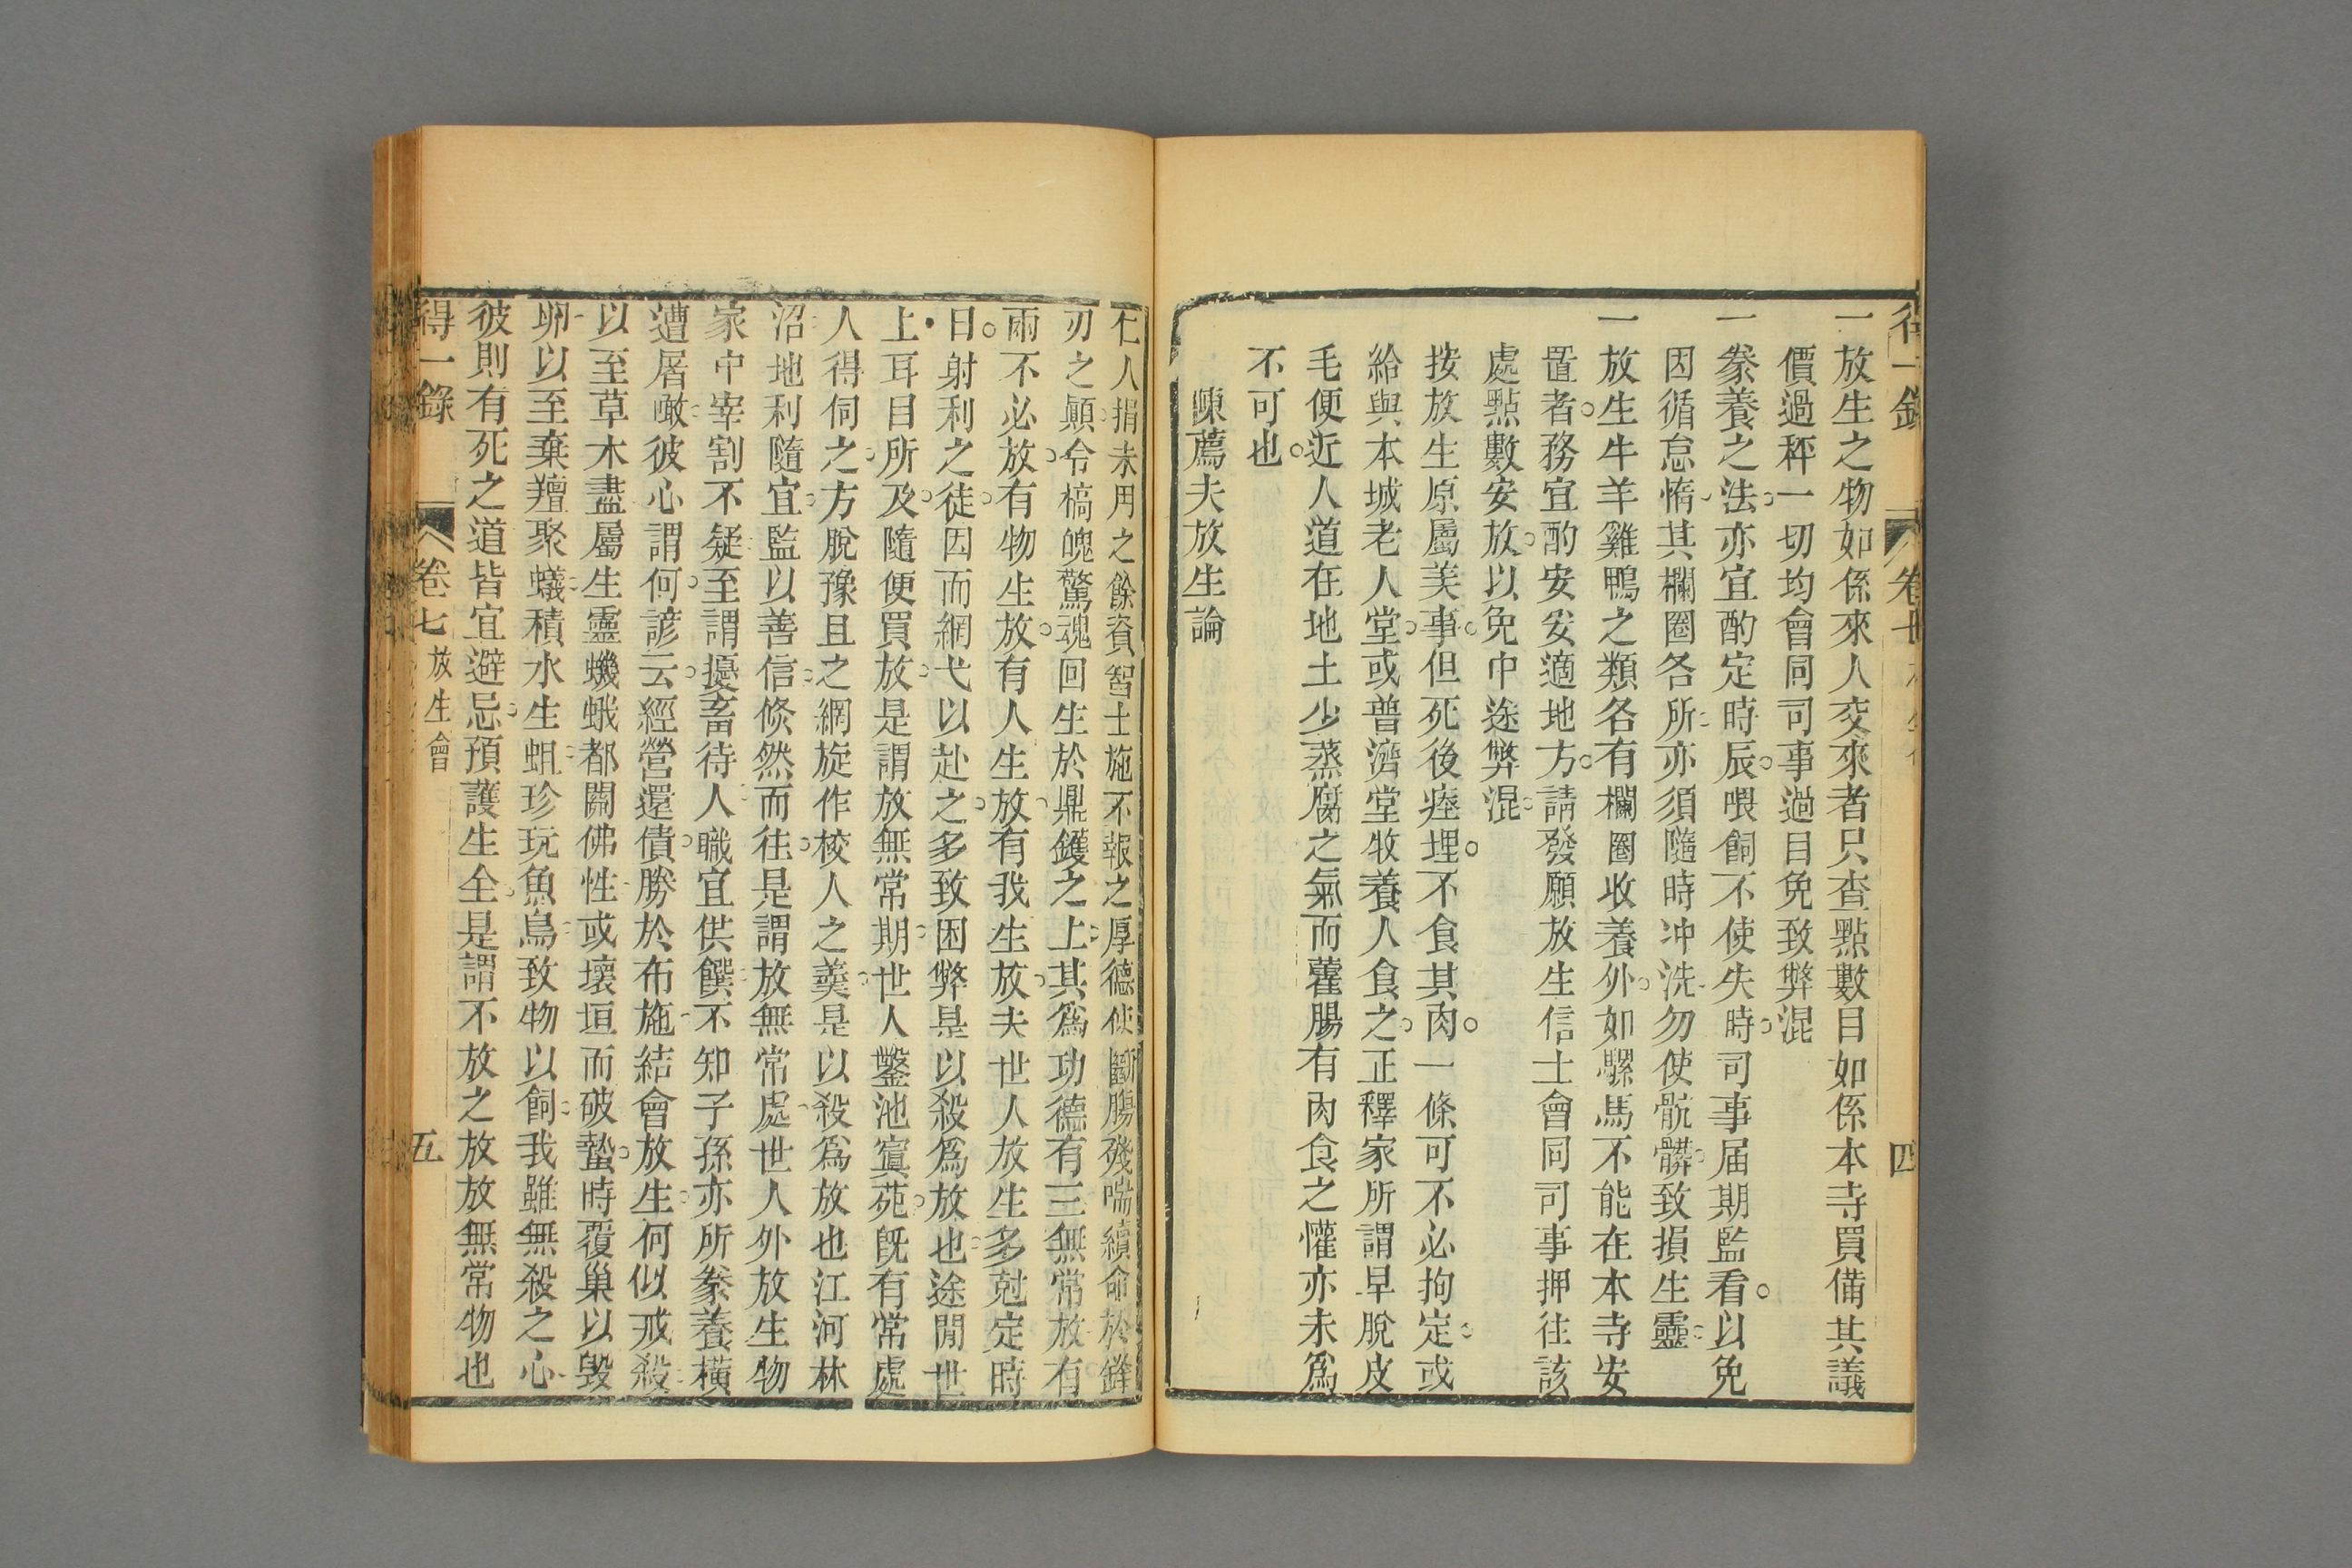 得一錄 卷七 四
一放生之物如係來人交來者只查點數目如係本寺買備其議
價過秤一切均會同司事過目免致弊混
一豢養之法亦宜酌定時辰喂飼不使失時司事届期監看以免
因循怠惰其欄圈各所亦須隨時冲洗勿使骯髒致損生靈
一放生牛羊雞鴨之類各有欄圈收養外如騾馬不能在本寺安
置者務宜酌安安適地方請發願放生信士會同司事押往該
處點數安放以免中途弊混
按放生原屬美事但死後瘞埋不食其肉一條可不必拘定或
給與本城老人堂或普濟堂牧養人食之正釋家所謂早脫皮
毛便近人道在地土少蒸腐之氣而藿腸有肉食之懽亦未爲
不可也
陳薦夫放生論
仁人捐未用之餘資智士施不報之厚德使斷腸殘喘續命於鋒
刃之顛令槁魄驚魂回生於鼎鑊之上其爲功德有三無常放有
兩不必放有物生放有人生放有我生放夫世人放生多尅定時
日射利之徒因而網弋以赴之多致困弊是以殺爲放也途閒世
上耳目所及隨便買放是謂放無常期世人鑿池寘苑旣有常處
人得伺之方脫豫且之網旋作校人之羹是以殺爲放也江河林
沼地利隨宜監以善信倏然而往是謂放無常處世人外放生物
家中宰割不疑至謂擾畜待人職宜供饌不知子孫亦所豢養橫
遭屠噉彼心謂何諺云經營還債勝於布施結會放生何似戒殺
以至草木盡屬生靈蟣蛾都關佛性或壞垣而破蟄時覆巢以毀
卵以至棄羶聚蟻積水生蛆珍玩魚鳥致物以飼我雖無殺之心
彼則有死之道皆宜避忌預護生全是謂不放之放放無常物也
得一錄 卷七 放生會 五